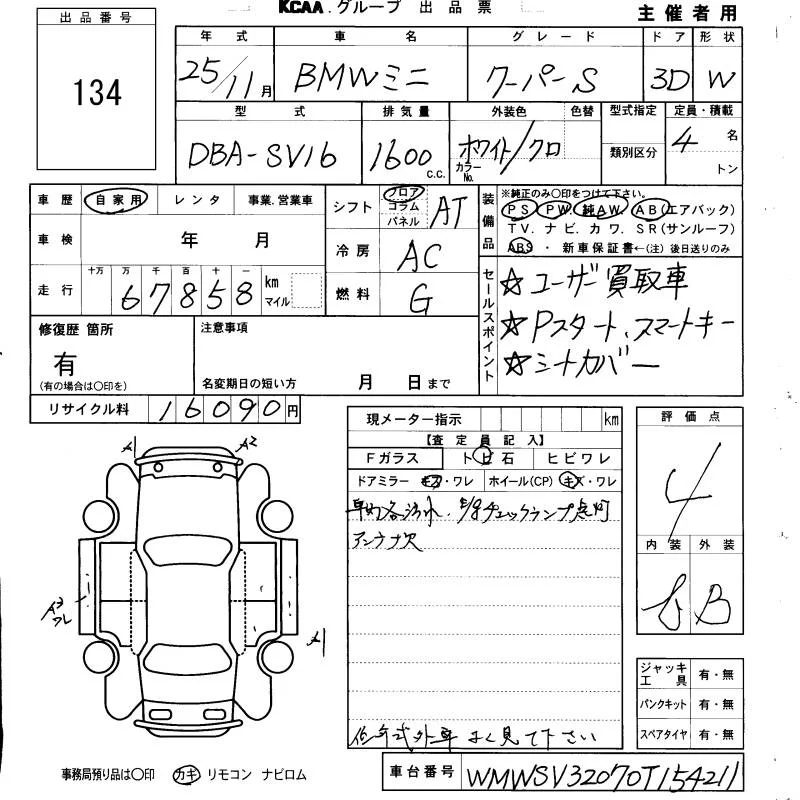 KCAA.グループ 出品票
主催者用
出品番号
134
年式 車名 グレード ドア 形状
25/11月 BMWミニ クーパーS 3D W
型式 排気量 外装色 色替 型式指定 定員・積載
DBA-SV16 1600 c.c. ホワイト/クロ カラーNo. 類別区分 4名 トン
車歴 自家用 レンタ 事業.営業車
シフト フロア コラム パネル AT
装備品 ※純正のみ〇印をつけて下さい。
PS PW. 純AW. AB(エアバック)
TV. ナビ. カワ. SR(サンルーフ)
ABS ・ 新車保証書←(注) 後日送りのみ
車検 年 月
冷房 AC
走行 十万 万 千 百 十 一
67858 km マイル
燃料 G
セールスポイント
☆ユーザー買取車
☆Pスタート、スマートキー
☆シートカバー
修復歴 箇所
有
(有の場合は〇印を)
注意事項
名変期日の短い方 月 日まで
リサイクル料 16090円
現メーター指示 km
【査定員記入】
Fガラス トビ石 ヒビワレ
ドアミラー キズ・ワレ ホイール(CP) キズ・ワレ
チェックランプ点灯
アンテナ欠
よく見て下さい
評価点
4
内装 外装
B
A1 A2
A3
ワレ
A1
ジャッキ工具 有・無
パンクキット 有・無
スペアタイヤ 有・無
事務局預り品は〇印 カギ リモコン ナビロム
車台番号 WMWSV32070T154211